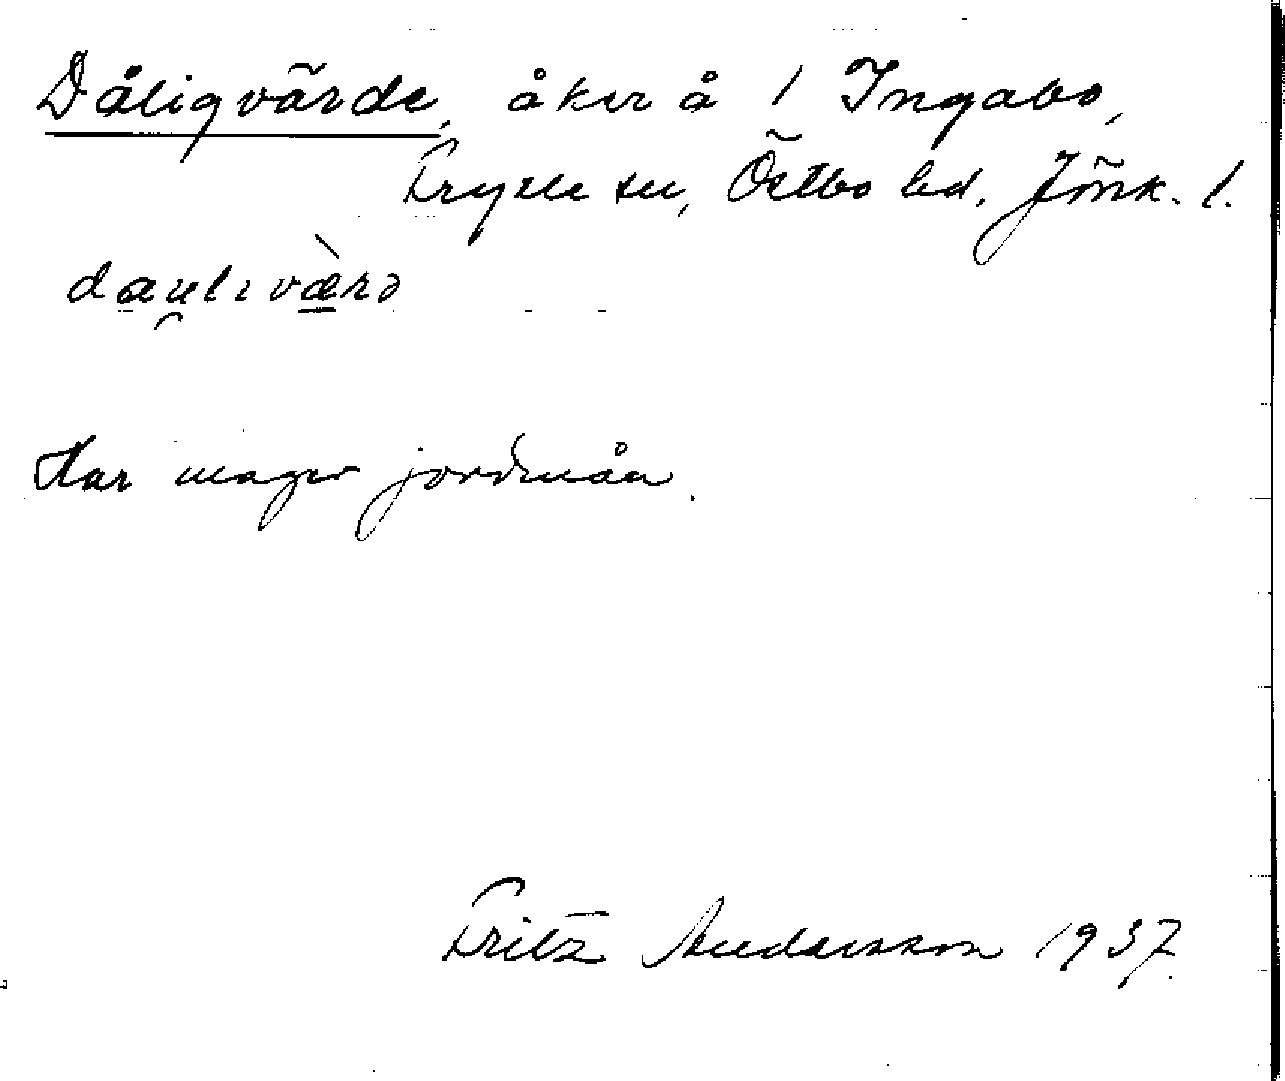 Dåligvärde, åker å 1 Ingabo,
Fryele sn, Östbo hd. Jönk. l.
daulivàrə
Har mager jordmån.
Fritz Andersson 1937.